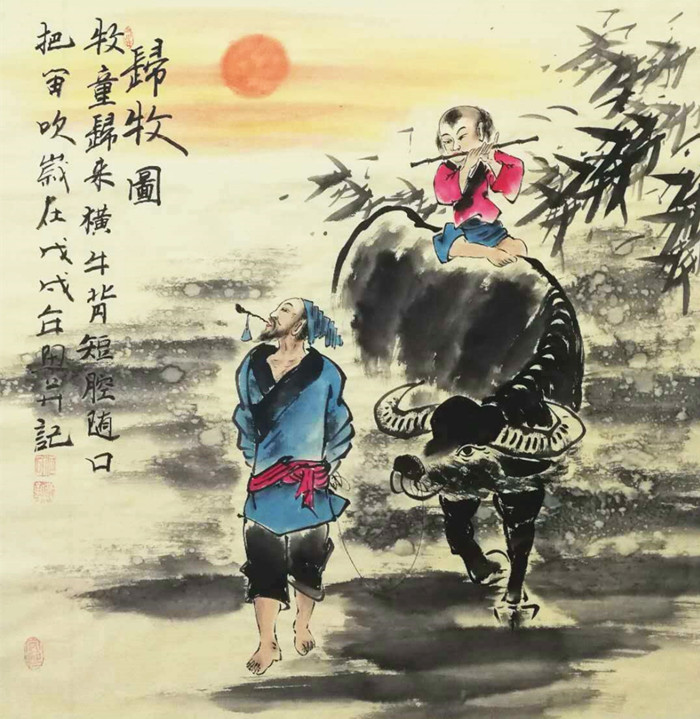 歸牧圖
牧童歸来横牛背短腔随口
把笛吹嵗在戊戌年記